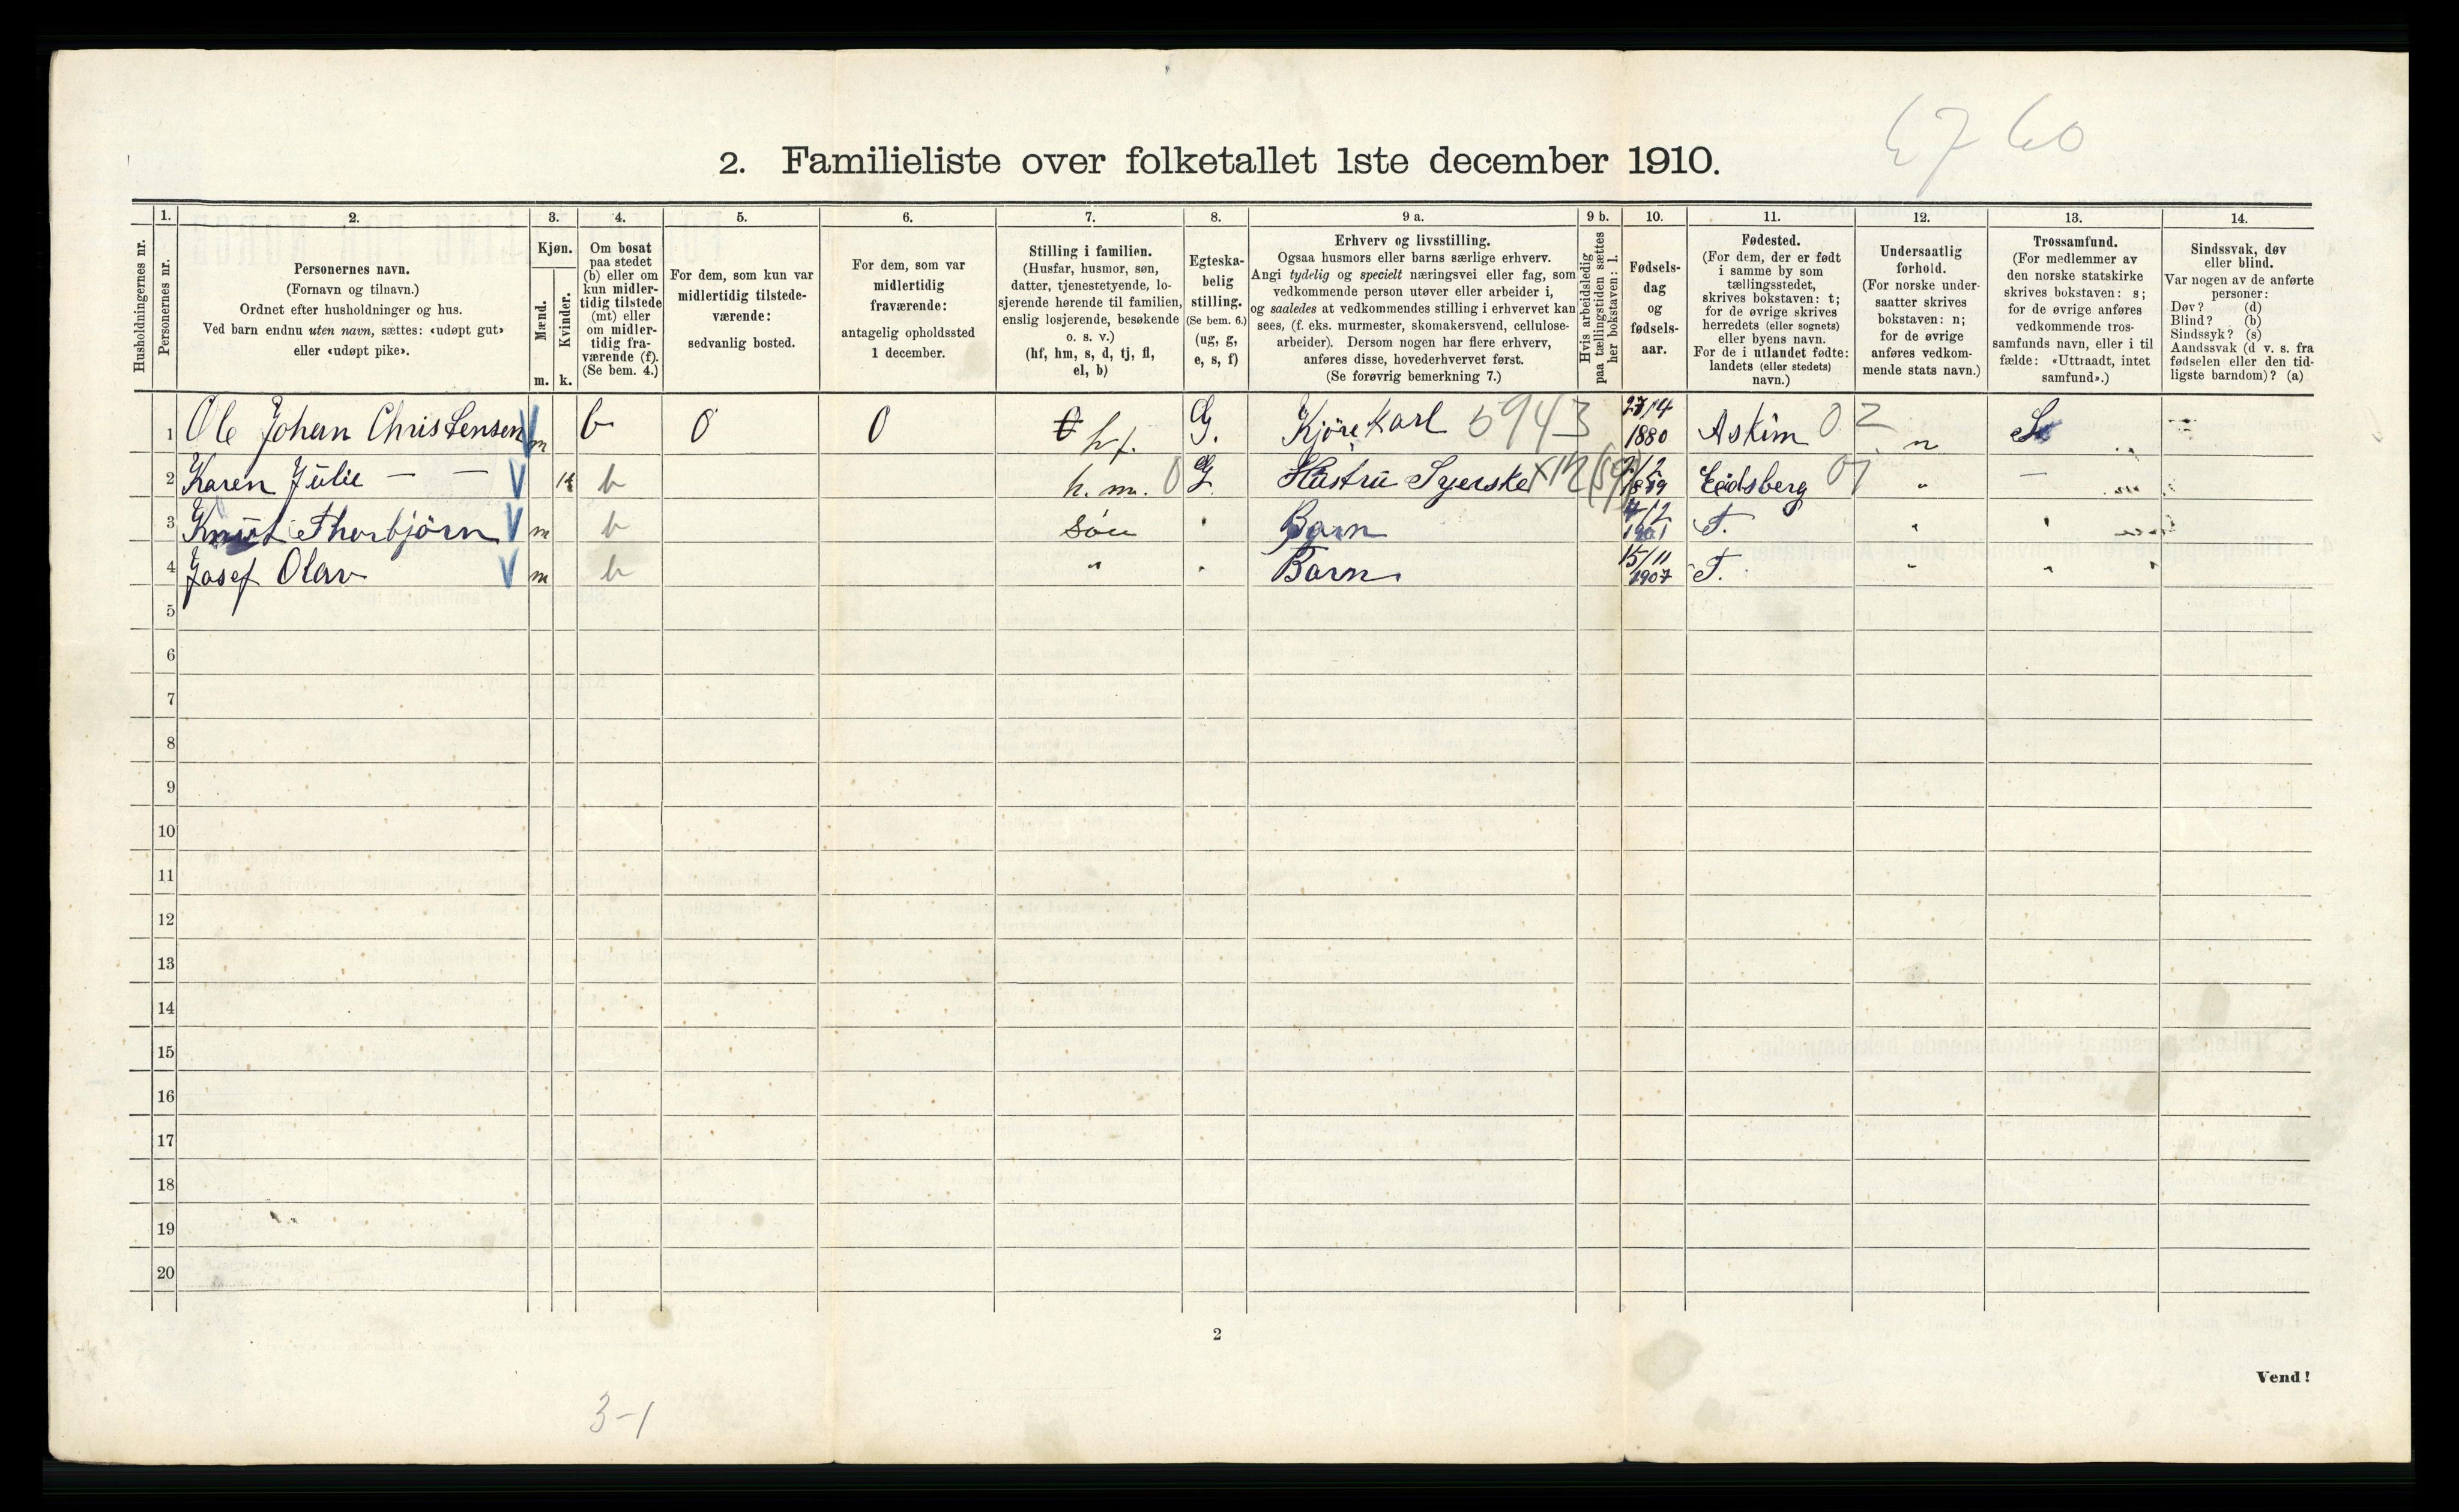 6760
2. Familieliste over folketallet 1ste december 1910.
Husholdningernes nr.
1. Personernes nr.
2. Personernes navn.
(Fornavn og tilnavn.)
Ordnet efter husholdninger og hus.
Ved barn endnu uten navn, sættes: «udøpt gut»
eller «udøpt pike».
3. Kjøn.
Mænd. m.
Kvinder. k.
4. Om bosat
paa stedet
(b) eller om
kun midler-
tidig tilstede
(mt) eller
om midler-
tidig fra-
værende (f).
(Se bem. 4.)
5. For dem, som kun var
midlertidig tilstede-
værende:
sedvanlig bosted.
6. For dem, som var
midlertidig
fraværende:
antagelig opholdssted
1 december.
7. Stilling i familien.
(Husfar, husmor, søn,
datter, tjenestetyende, lo-
sjerende hørende til familien,
enslig losjerende, besøkende
o. s. v.)
(hf, hm, s, d, tj, fl,
el, b)
8. Egteska-
belig
stilling.
(Se bem. 6.)
(ug, g,
e, s, f)
9 a. Erhverv og livsstilling.
Ogsaa husmors eller barns særlige erhverv.
Angi tydelig og specielt næringsvei eller fag, som
vedkommende person utøver eller arbeider i,
og saaledes at vedkommendes stilling i erhvervet kan
sees, (f. eks. murmester, skomakersvend, cellulose-
arbeider). Dersom nogen har flere erhverv,
anføres disse, hovederhvervet først.
(Se forøvrig bemerkning 7.)
9 b. Hvis arbeidsledig
paa tællingstiden sættes
her bokstaven: l.
10. Fødsels-
dag
og
fødsels-
aar.
11. Fødested.
(For dem, der er født
i samme by som
tællingsstedet,
skrives bokstaven: t;
for de øvrige skrives
herredets (eller sognets)
eller byens navn.
For de i utlandet fødte:
landets (eller stedets)
navn.)
12. Undersaatlig
forhold.
(For norske under-
saatter skrives
bokstaven: n;
for de øvrige
anføres vedkom-
mende stats navn.)
13. Trossamfund.
(For medlemmer av
den norske statskirke
skrives bokstaven: s;
for de øvrige anføres
vedkommende tros-
samfunds navn, eller i til
fælde: «Uttraadt, intet
samfund».)
14. Sindssvak, døv
eller blind.
Var nogen av de anførte
personer:
Døv? (d)
Blind? (b)
Sindssyk? (s)
Aandssvak (d v. s. fra
fødselen eller den tid-
ligste barndom)? (a)
1 Ole Johan Christensen m b 0 0 hf. G. Kjørekarl 5943 27/4 1880 Askim 02 n S
2 Karen Julie — — k b h. m. 0 G. Hustru Syerske Eidsberg 07 "
3 Knut Thorbjörn m b Sön " Barn T. "
4 Josef Olav m b " " Barn. 15/11 1907 T. " "
5
6
7
8
9
10
11
12
13
14
15
16
17
18
19
20
2
Vend!
3-1